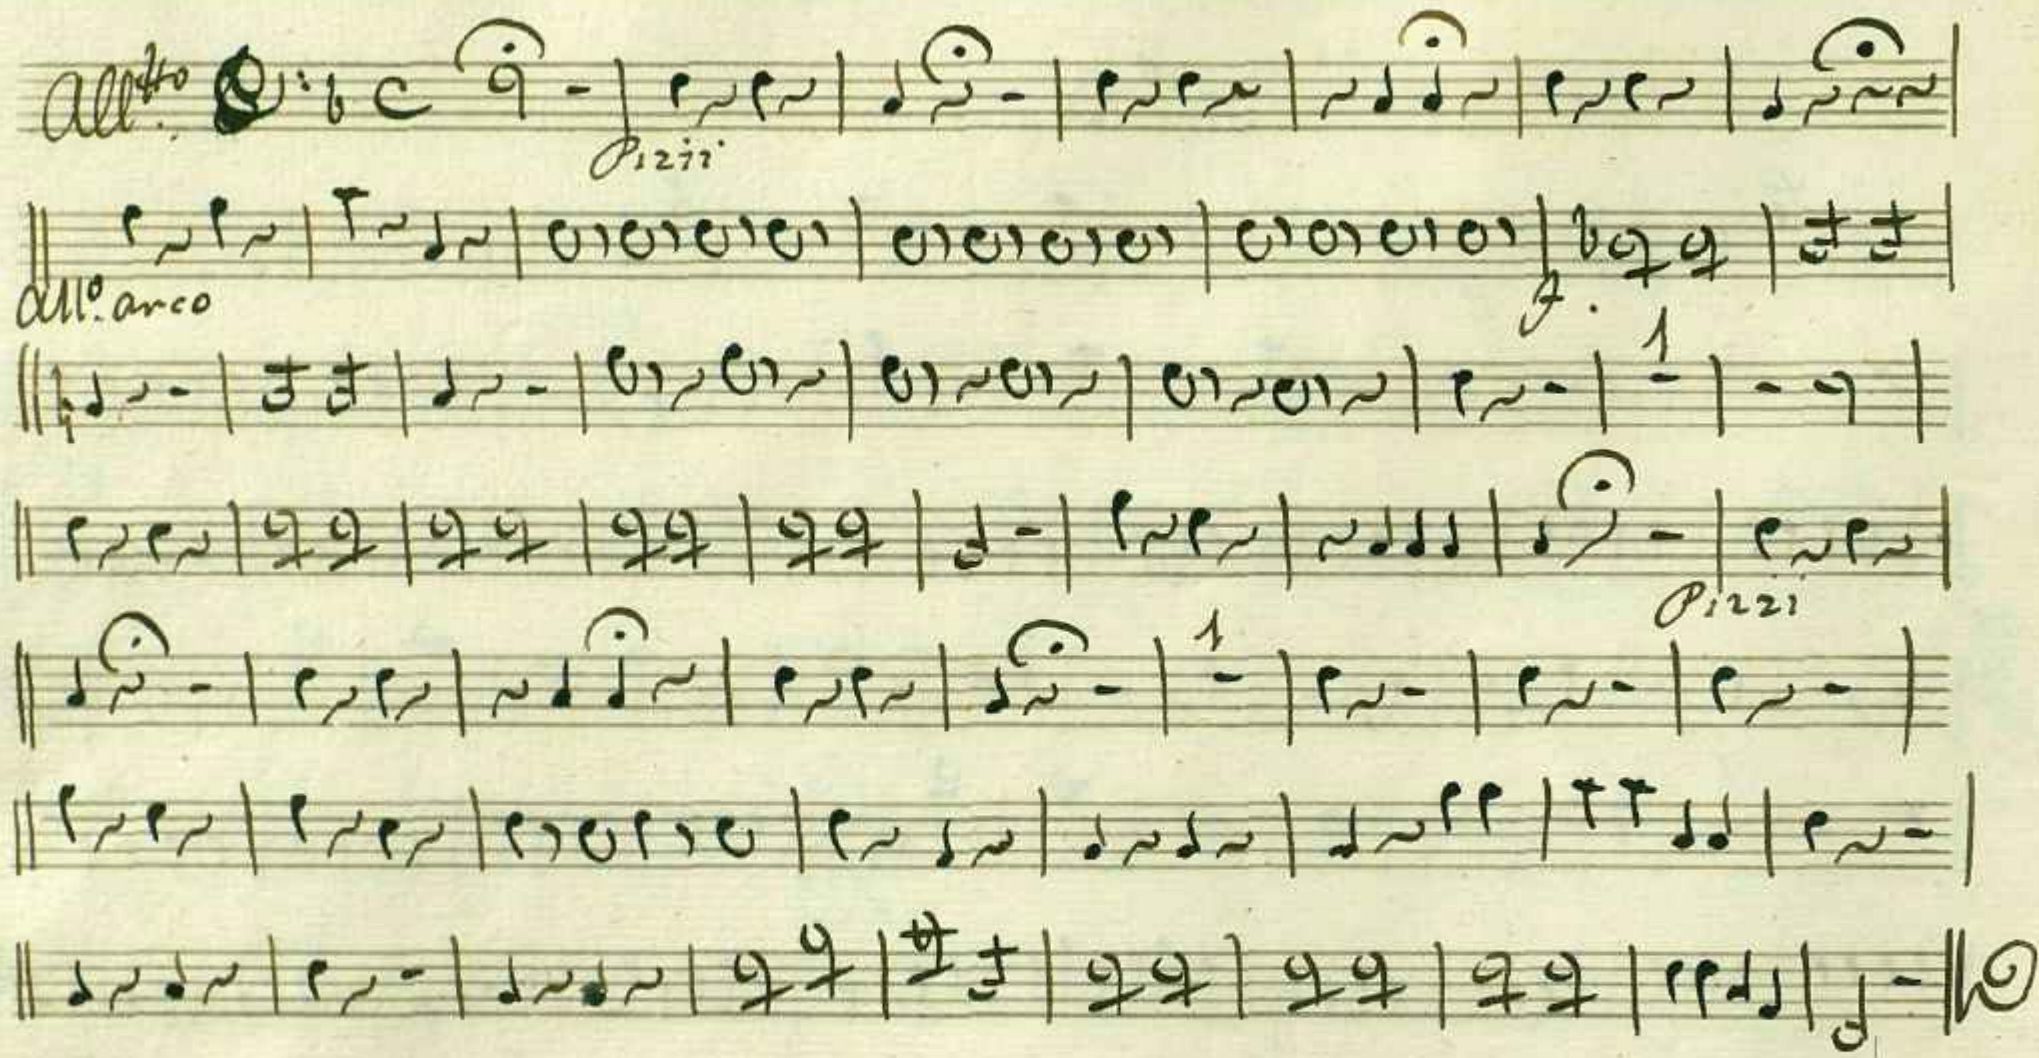 All.tto
Pizzi
All.o arco
f.
1
Pizzi
1